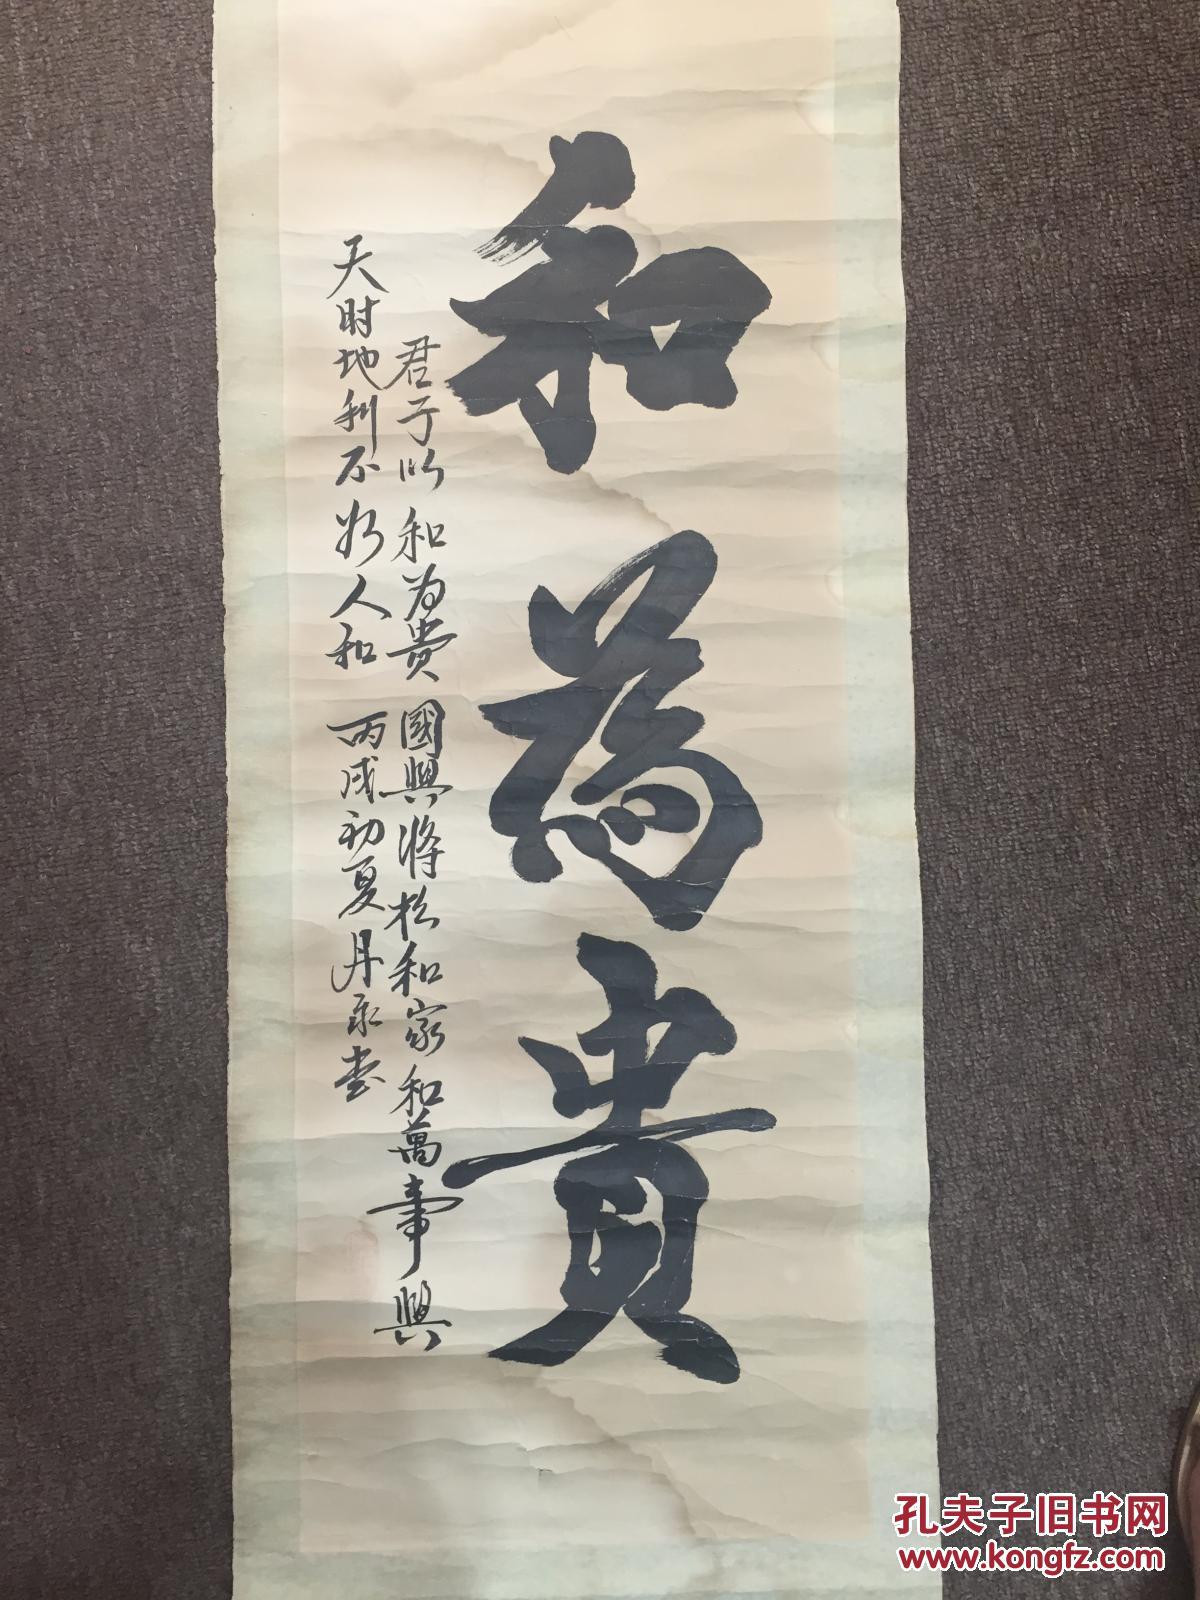 和為貴
君子以和为貴國興將於和家和萬事興
天时地利不如人和 丙戌初夏丹永书
孔夫子旧书网
www.kongfz.com